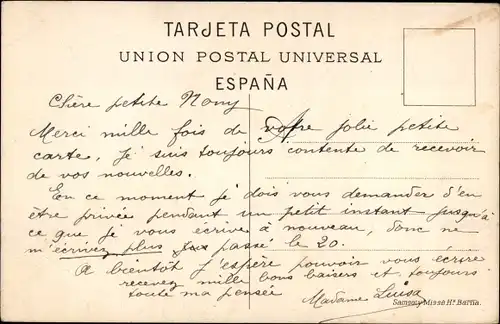 TARJETA POSTAL
UNION POSTAL UNIVERSAL
ESPAÑA
Chère petite Nony
Merci mille fois de votre jolie petite
carte, je suis toujours contente de recevoir
de vos nouvelles.
En ce moment je dois vous demander d'en
être privée pendant un petit instant jusqu'à
ce que je vous écrive à nouveau, donc ne
m'écrivez plus passé le 20.
A bientôt j'espère pouvoir vous écrire
recevez mille bons baisers et toujours
toute ma pensée
Madame Luisa
Samsot y Missé Hs. Barna.